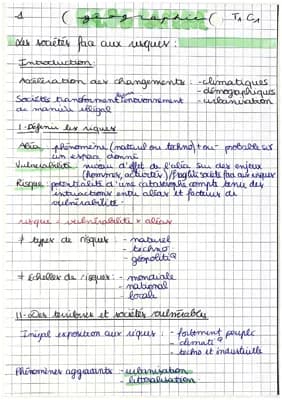 ( géographie ( T1 C1
Les sociétés face aux risques :
Introduction
Accélération des changements : - climatiques
- démographiques
- urbanisation
Sociétés transforment environnement
de manière illégal
I - Définir les risques
Aléa : phénomène (naturel ou techno) + ou - probable sur
un espace donné
Vulnérabilité : niveau d'effet de l'aléa sur des enjeux
(hommes, activités) / fragilité société face aux risques
Risque : potentialité d'une catastrophe compte tenu des
interactions entre aléas et facteurs de
vulnérabilité.
risque = vulnérabilité x aléas
≠ types de risques : - naturel
- techno
- géopolitiq
≠ échelles de risques : - mondiale
- national
- locale
II - Des territoires et sociétés vulnérables
Inégal exposition aux risques : - fortement peuplé
- climatiq
- techno et industrielle
Phénomènes aggravants - urbanisation
- littoralisation